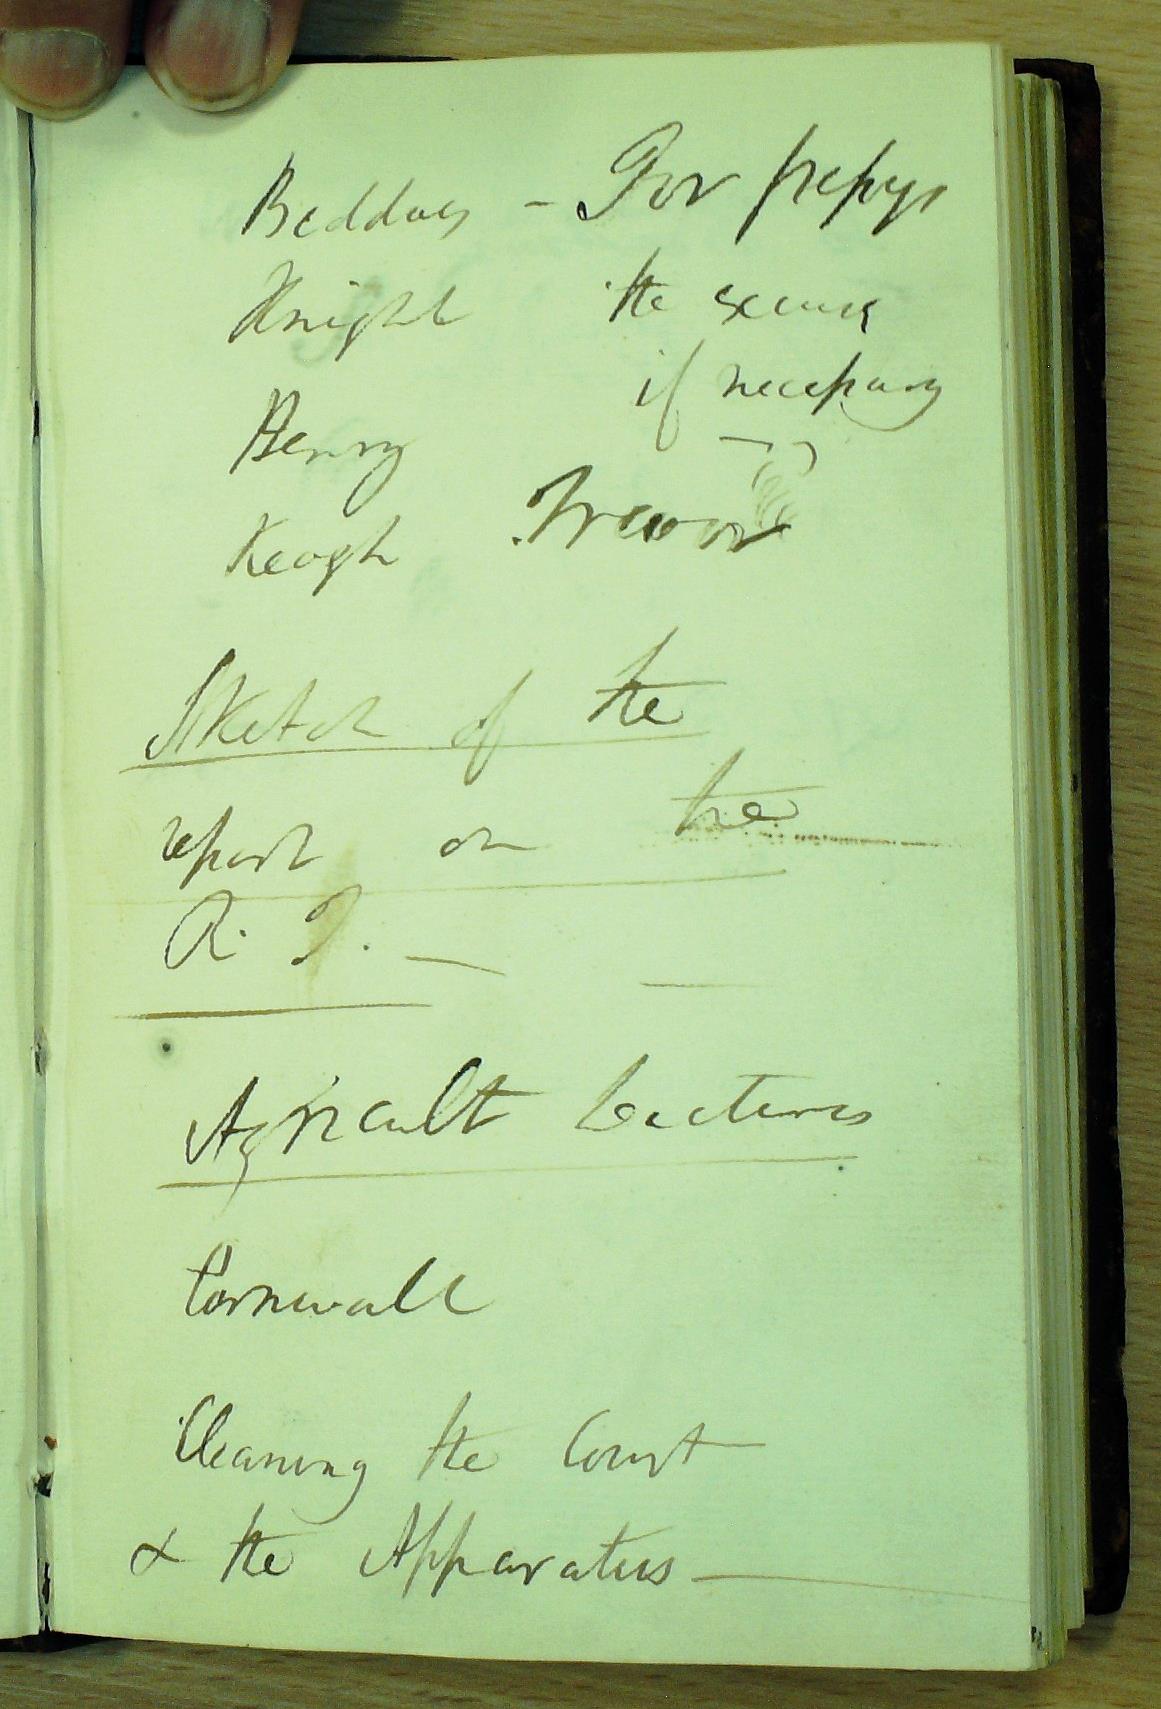 Beddoes – For prepys
Knight the excuse
if necessary
Henry
Keogh Trevor
Sketch of the
report on the
R. I. —
Agricult Lectures
Cornwall
Cleaning the Court
& the Apparatus —